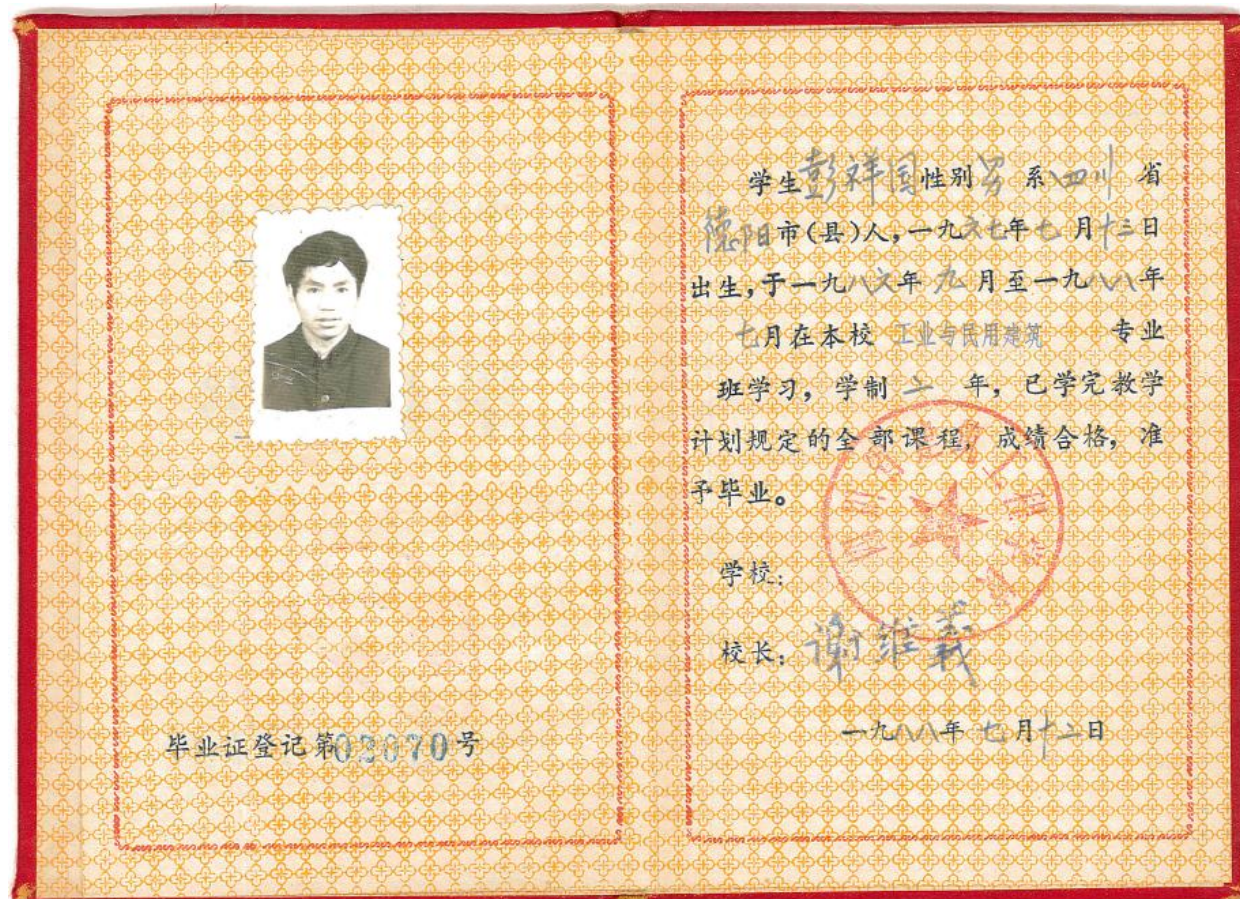 毕业证登记第02070号
学生彭祥国性别男 系四川 省
德阳市(县)人,一九六七年七月十三日
出生,于一九八六年九月至一九八八年
七月在本校 工业与民用建筑 专业
班学习,学制二年,已学完教学
计划规定的全部课程,成绩合格,准
予毕业。
四川省建筑工程学校
学校:
校长:谢维義
一九八八年七月十二日